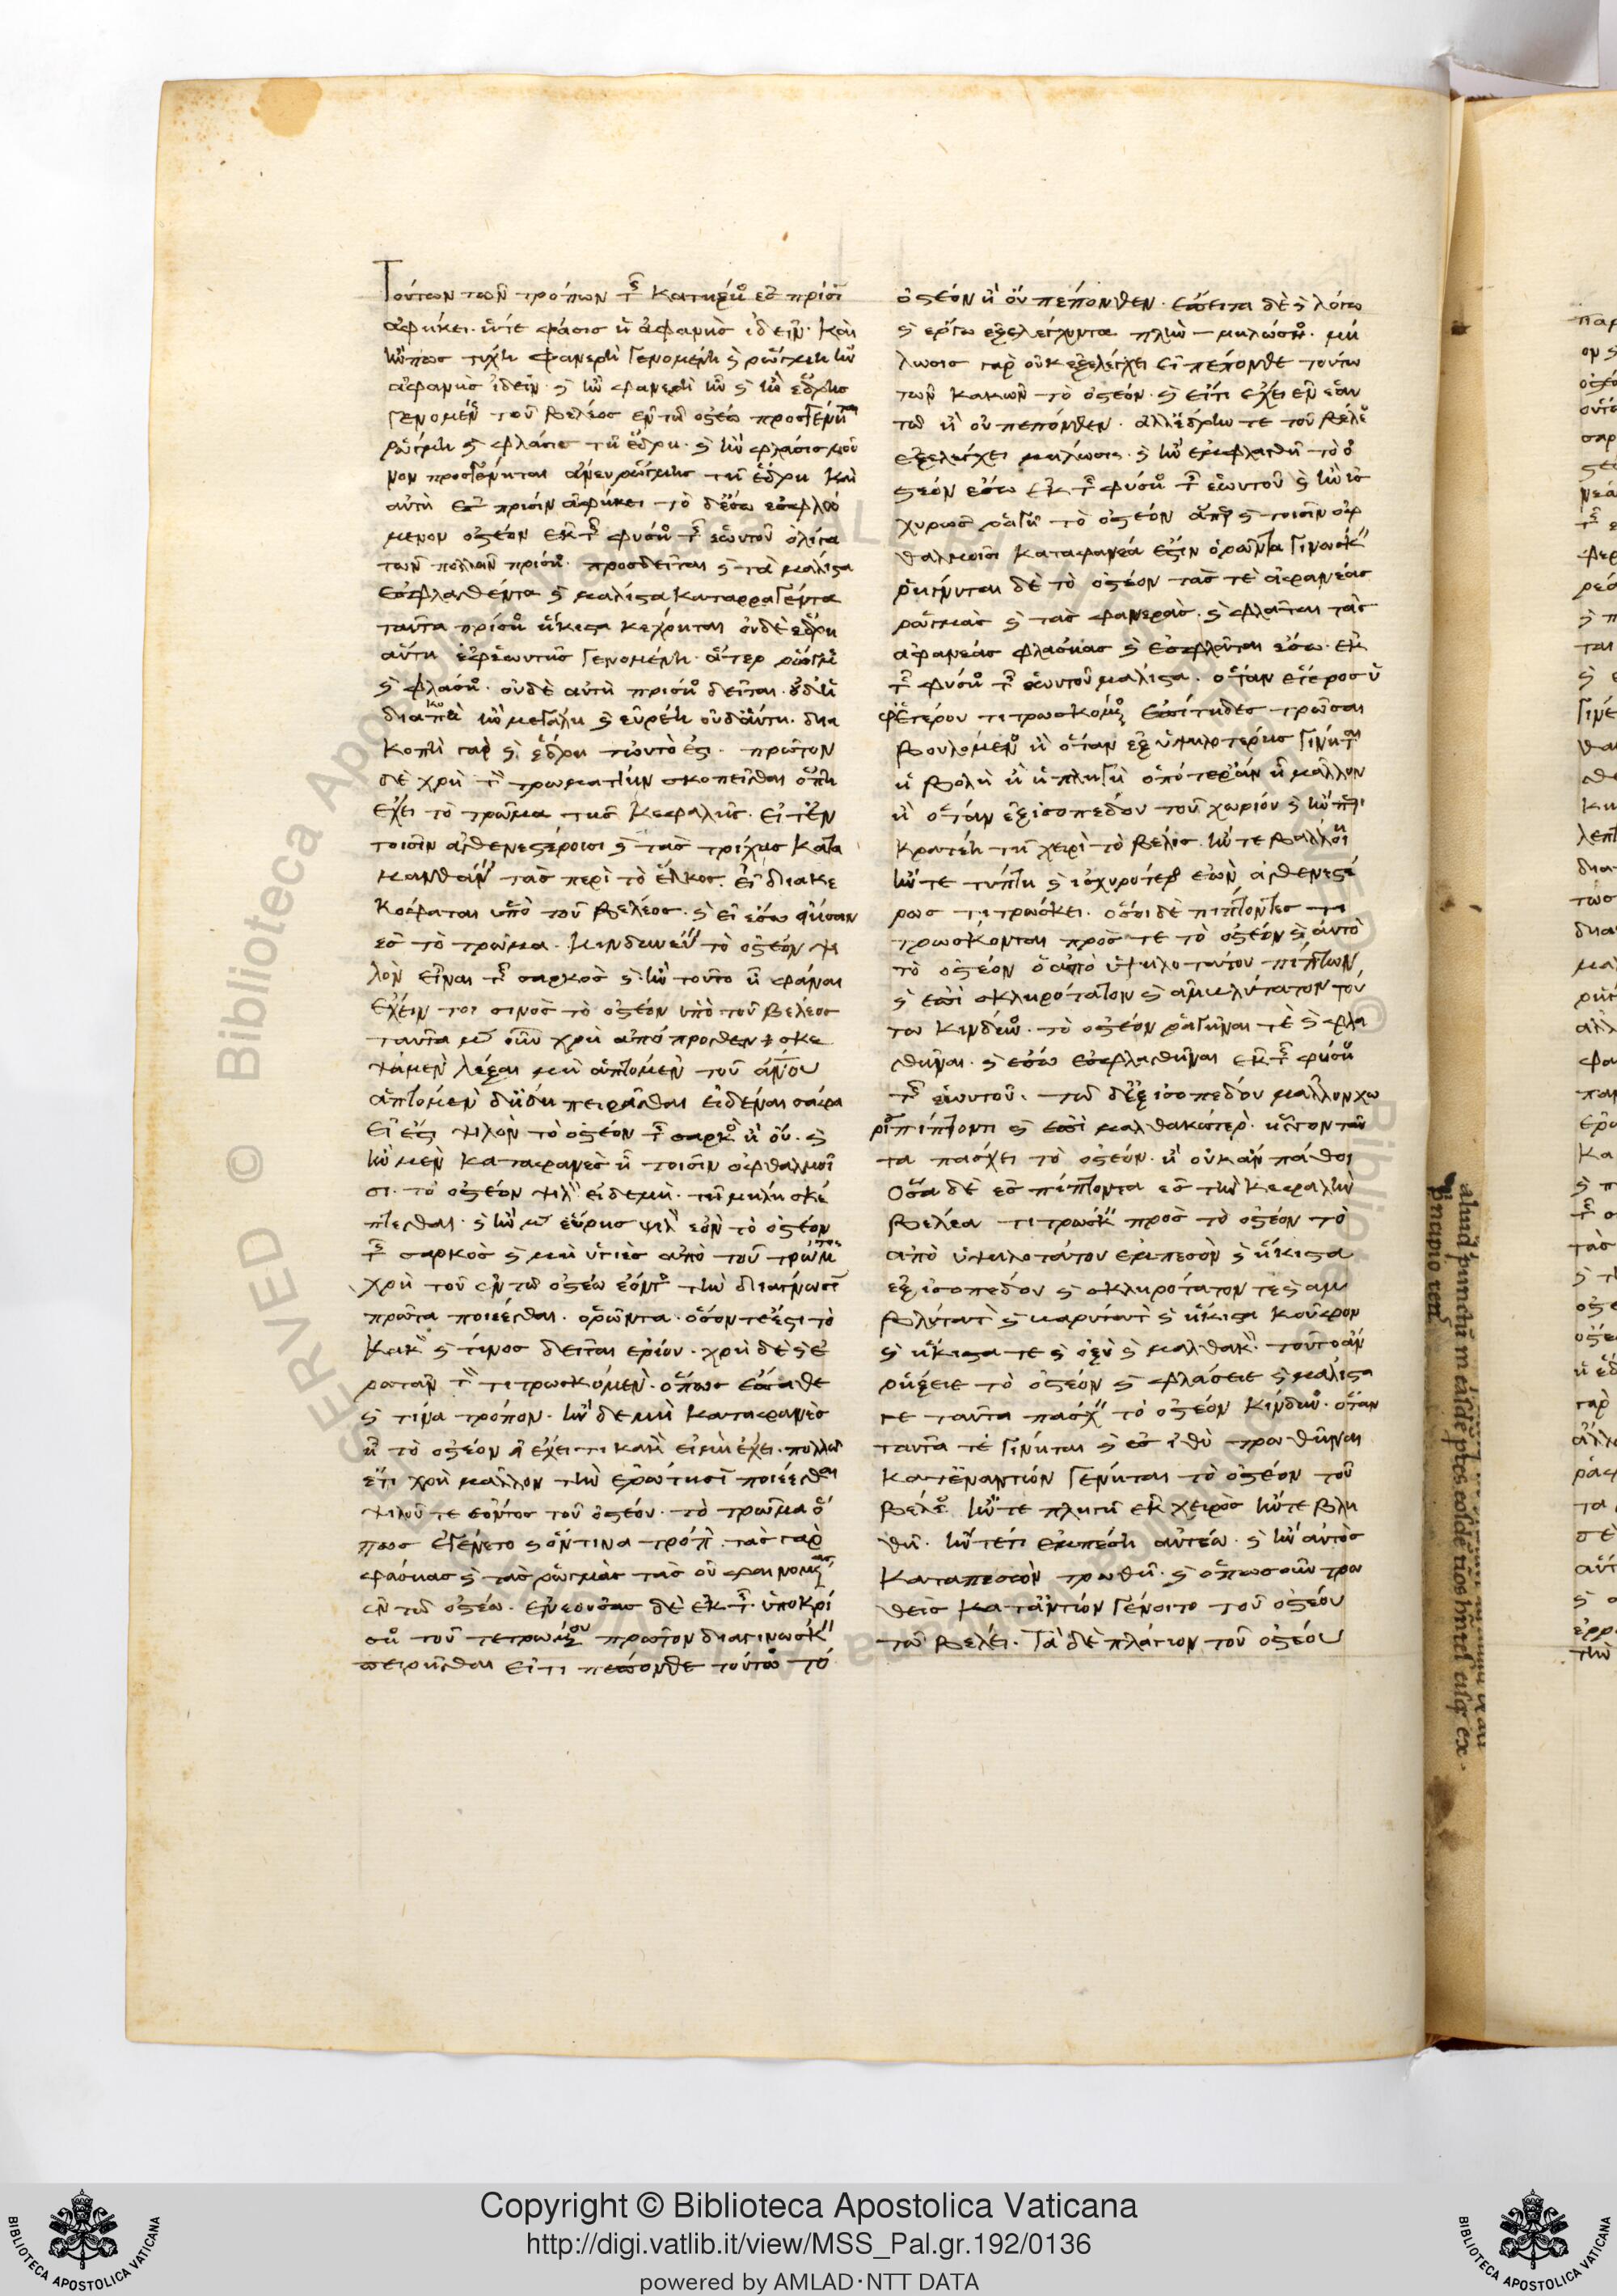 Τούτων τῶν τρόπων τῆς κατήξιος ἐς πρίσιν
ἀφήκει· ἥτε φλάσις ἡ ἀφανὴς ἰδεῖν· καὶ
ἤν πως τύχη φανερὴ γενομένη καὶ ῥωγμὴ ἢν
ἀφανὴς ἰδεῖν· καὶ ἢν φανερὴ ἦν καὶ ἢν ἕδρης
γενομένης τοῦ βέλεος ἐν τῶ ὀστέω προσγένηται
ῥωγμὴ καὶ φλάσις τῆ ἕδρη· καὶ ἢν φλάσις μοῦ
νον προσγένηται ἄνευ ῥωγμῆς τῆ ἕδρη καὶ
αὐτὴ ἐς πρίσιν ἀφήκει· τὸ δὲ ἔσω ἐσφλώ
μενον ὀστέον ἐκ τῆς φύσιος τῆς ἑωυτοῦ ὀλίγα
τῶν πολλῶν πρίσιος προσδεῖται καὶ τὰ μάλιστα
ἐσφλασθέντα καὶ μάλιστα καταρραγέντα
ταῦτα πρίσιος ἥκιστα κέχρηται οὐδὲ ἕδρη
αὕτη ἐφ' ἑωυτῆς γενομένη· ἄτερ ῥωγμῆς
καὶ φλάσιος· οὐδὲ αὐτὴ πρίσιος δεῖται· οὐδ' ἡ
διακοπὴ ἢν μεγάλη καὶ εὐρέη οὐδ' αὕτη· δια
κοπὴ γὰρ καὶ ἕδρη τωυτό ἐστι· πρῶτον
δὲ χρὴ τὸν τρωματίην σκοπεῖσθαι ὅπη
ἔχει τὸ τρῶμα τῆς κεφαλῆς· εἴτ' ἐν
τοῖσιν ἀσθενεστέροισι καὶ τὰς τρίχας κατα
μανθάνειν τὰς περὶ τὸ ἕλκος. εἰ διακε
κόφαται ὑπὸ τοῦ βέλεος· καὶ εἰ ἔσω ἤισαν
ἐς τὸ τρῶμα· κινδυνεύειν τὸ ὀστέον ψι
λὸν εἶναι τῆς σαρκὸς καὶ ἢν τοῦτο ἦ φάναι
ἔχειν τοι σίνος τὸ ὀστέον ὑπὸ τοῦ βέλεος
ταῦτα μὲν οὖν χρὴ ἀπόπροσθεν σκε
ψάμενον λέξαι μὴ ἁπτόμενον τοῦ ἀνου
ἁπτόμενον δ' ἤδη πειρᾶσθαι εἰδέναι σάφα
εἰ ἐστι ψιλὸν τὸ ὀστέον τῆς σαρκὸς ἢ οὔ· καὶ
ἢν μὲν καταφανὲς ἦ τοῖσιν ὀφθαλμοῖ
σι· τὸ ὀστέον ψιλὸν εἰ δὲ μὴ· τῆ μήλη σκέ
πτεσθαι· καὶ ἢν μὲν εὕρης ψιλὸν ἐὸν τὸ ὀστέον
τῆς σαρκὸς καὶ μὴ ὑγιὲς ἀπὸ τοῦ τρώματος
χρὴ τοῦ ἐν τῶ ὀστέω ἐόντος τὴν διάγνωσιν
πρῶτα ποιέεσθαι. ὁρῶντα· ὁσον τέ ἐστι τὸ
κακὸν καὶ τίνος δεῖται ἔργου· χρὴ δὲ καὶ ἐ
ρωτᾶν τὸν τιτρωσκόμενον· ὅπως ἔπαθε
καὶ τίνα τρόπον· ἢν δὲ μὴ καταφανὲς
ἦ τὸ ὀστέον εἰ ἔχει τι κακὸν εἰ μὴ ἔχει· πολλῶ
ἔτι χρὴ μᾶλλον τὴν ἐρώτησιν ποιέεσθαι
ψιλοῦ τε ἐόντος τοῦ ὀστέου· τὸ τρῶμα ὅ
πως ἐγένετο καὶ ὅντινα τρόπον· τὰς γὰρ
φλάσιας καὶ τὰς ῥωγμὰς τὰς οὐ φαινομένας
ἐν τῶ ὀστέω. ἐνεούσας δὲ ἐκ τῆς ὑποκρί
σιος τοῦ τετρωμένου πρῶτον διαγινώσκειν
πειρῆσθαι εἴ τι πέπονθε τούτων τὸ
ὀστέον ἢ οὐ πέπονθεν· ἔπειτα δὲ καὶ λόγω
καὶ ἔργω ἐξελέγχοντα πλὴν μηλώσιος· μή
λωσις γὰρ οὐκ ἐξελέγχει εἰ πέπονθε τούτω
των κακῶν τὸ ὀστέον· καὶ εἴ τι ἔχει ἐν ἑαυ
τῶ ἢ οὐ πέπονθεν· ἀλλ' ἕδρην τε τοῦ βέλεος
ἐξελέγχει μήλωσις· καὶ ἢν ἐμφλασθῆ τὸ ὀ
στέον ἔσω ἐκ τῆς φύσιος τῆς ἑωυτοῦ καὶ ἢν ἰς
χυρῶς ῥαγῆ τὸ ὀστέον ἅπερ καὶ τοῖσιν ὀφ
θαλμοῖσι καταφανέα ἐστὶν ὁρῶντα γινώσκειν
ῥήγνυται δὲ τὸ ὀστέον τάς τε ἀφανέας
ῥωγμὰς καὶ τὰς φανερὰς· καὶ φλᾶται τὰς
ἀφανέας φλάσιας καὶ ἐσφλᾶται ἔσω· ἐκ
τῆς φύσιος τῆς ἑωυτοῦ μάλιστα· ὅταν ἕτερος ὑ
φ' ἑτέρου τιτρωσκόμενος ἐπίτηδες τρῶσαι
βουλομένου ἢ ὅταν ἐξ ὑψηλοτέρης γίνηται
ἡ βολὴ ἢ ἡ πληγὴ ὁπότερον ἂν ἦ μᾶλλον
ἢ ὅταν ἐξ ἰσοπέδου τοῦ χωρίου καὶ ἢν περι
κρατέη τῆ χειρὶ τὸ βέλος· ἤν τε βάλλη
ἤν τε τύπτη καὶ ἰσχυρότερος ἐὼν ἀσθενεστέ
ρως τιτρώσκει· ὅσοι δὲ πίπτοντες τι
τρώσκονται πρός τε τὸ ὀστέον καὶ αὐτὸ
τὸ ὀστέον ὁ ἀπὸ ὑψηλοτάτου πίπτων
καὶ ἐπὶ σκληρότατον καὶ ἀμβλύτατον τού
τω κίνδυνος· τὸ ὀστέον ῥαγῆναι τὲ καὶ φλα
σθῆναι· καὶ ἔσω ἐσφλασθῆναι ἐκ τῆς φύσιος
τῆς ἑωυτοῦ. τῶ δ' ἐξ ἰσοπέδου μᾶλλον χω
ρίου πίπτοντι καὶ ἐπὶ μαλθακώτερον· ἧσσον ταῦ
τα πάσχει τὸ ὀστέον· ἢ οὐκ ἂν πάθοι
Ὅσα δὲ ἐσπίπτοντα ἐς τὴν κεφαλὴν
βέλεα τιτρώσκει πρὸς τὸ ὀστέον τὸ
ἀπὸ ὑψηλοτάτου ἐμπεσὸν καὶ ἥκιστα
ἐξ ἰσοπέδου καὶ σκληρότατον τε καὶ ἀμ
βλύτατον καὶ βαρύτατον καὶ ἥκιστα κοῦφον
καὶ ἥκιστά τε καὶ ὀξὺ καὶ μαλθακὸν τοῦτο ἂν
ῥήξειε τὸ ὀστέον καὶ φλάσειε καὶ μάλιστα
γε ταῦτα πάσχειν τὸ ὀστέον κίνδυνος· ὅταν
ταῦτα τὲ γίνηται καὶ ἐς ἰθὺ τρωθῆναι
κατέναντίον γένηται τὸ ὀστέον τοῦ
βέλεος ἤν τε πληγῆ ἐκ χειρὸς ἤν τε βλη
θῆ· ἤν τέ τι ἐμπέση αὐτέω· καὶ ἢν αὐτὸς
καταπεσὼν τρωθῆ· καὶ ὁπωσοῦν τρω
θεὶς κατ' ἀντίον γένοιτο τοῦ ὀστέου
τῶ βέλει. Τὰ δὲ πλάγιον τοῦ ὀστέου
Copyright © Biblioteca Apostolica Vaticana
http://digi.vatlib.it/view/MSS_Pal.gr.192/0136
powered by AMLAD·NTT DATA
BIBLIOTECA APOSTOLICA VATICANA
BIBLIOTECA APOSTOLICA VATICANA